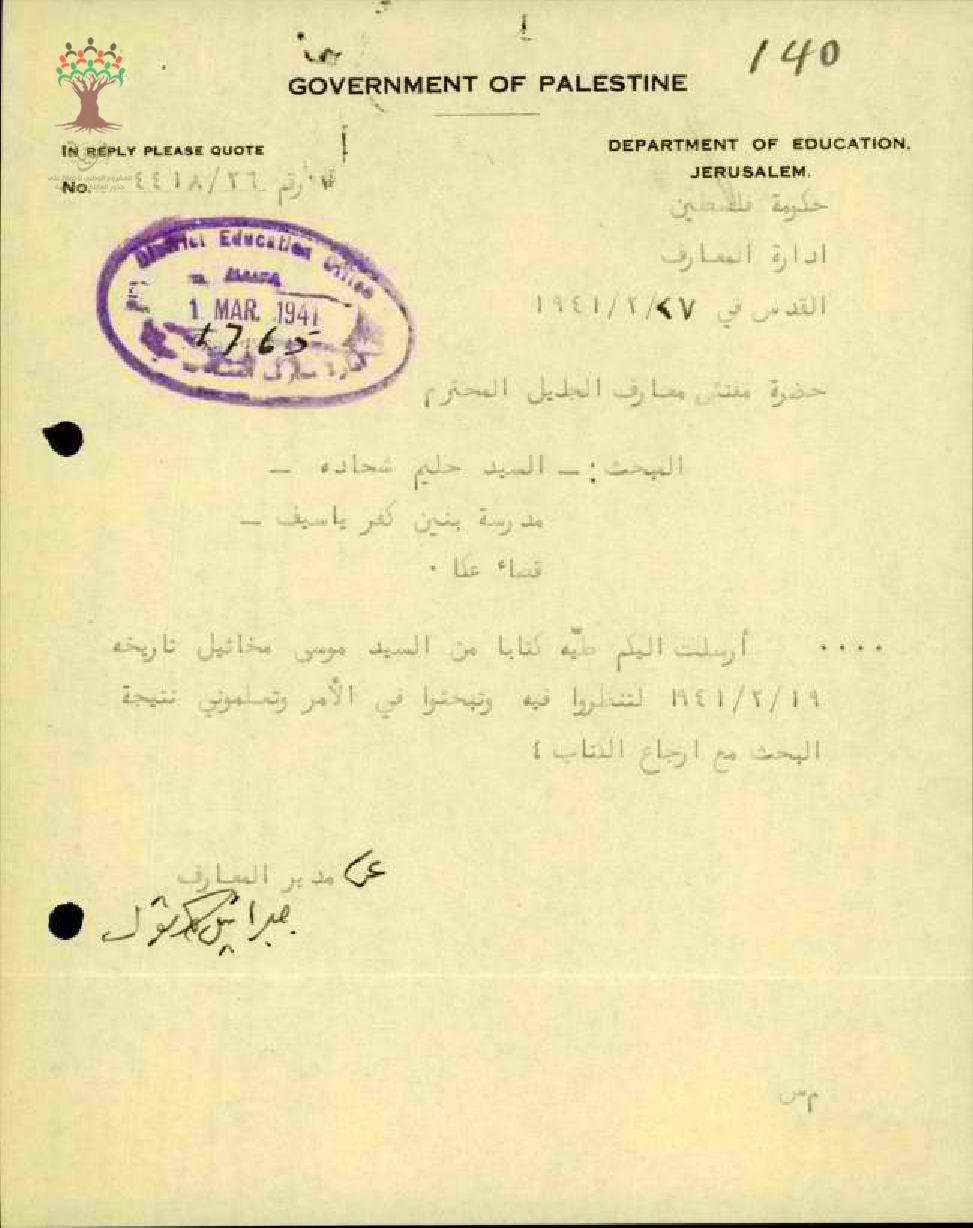 140
GOVERNMENT OF PALESTINE
IN REPLY PLEASE QUOTE
No. رقم ٤٤١٨/٢٦
DEPARTMENT OF EDUCATION,
JERUSALEM.
حكومة فلسطين
ادارة المعارف
القدس في ٢٧/٢/١٩٤١
District Education Office
1 MAR. 1941
1765
حضرة مفتش معارف الجليل المحترم
البحث :ـ السيد حليم شحاده ـ
مدرسة بنين كفر ياسيف ـ
قضاء عكا ٠
٠٠٠٠ أرسلت اليكم طيّه كتابا من السيد موسى مخائيل تاريخه
١٩٤١/٢/١٩ لتنظروا فيه وتبحثوا في الأمر وتعلموني نتيجة
البحث مع ارجاع الكتاب ٤
عن مدير المعارف
جبرائيل كتول
م س